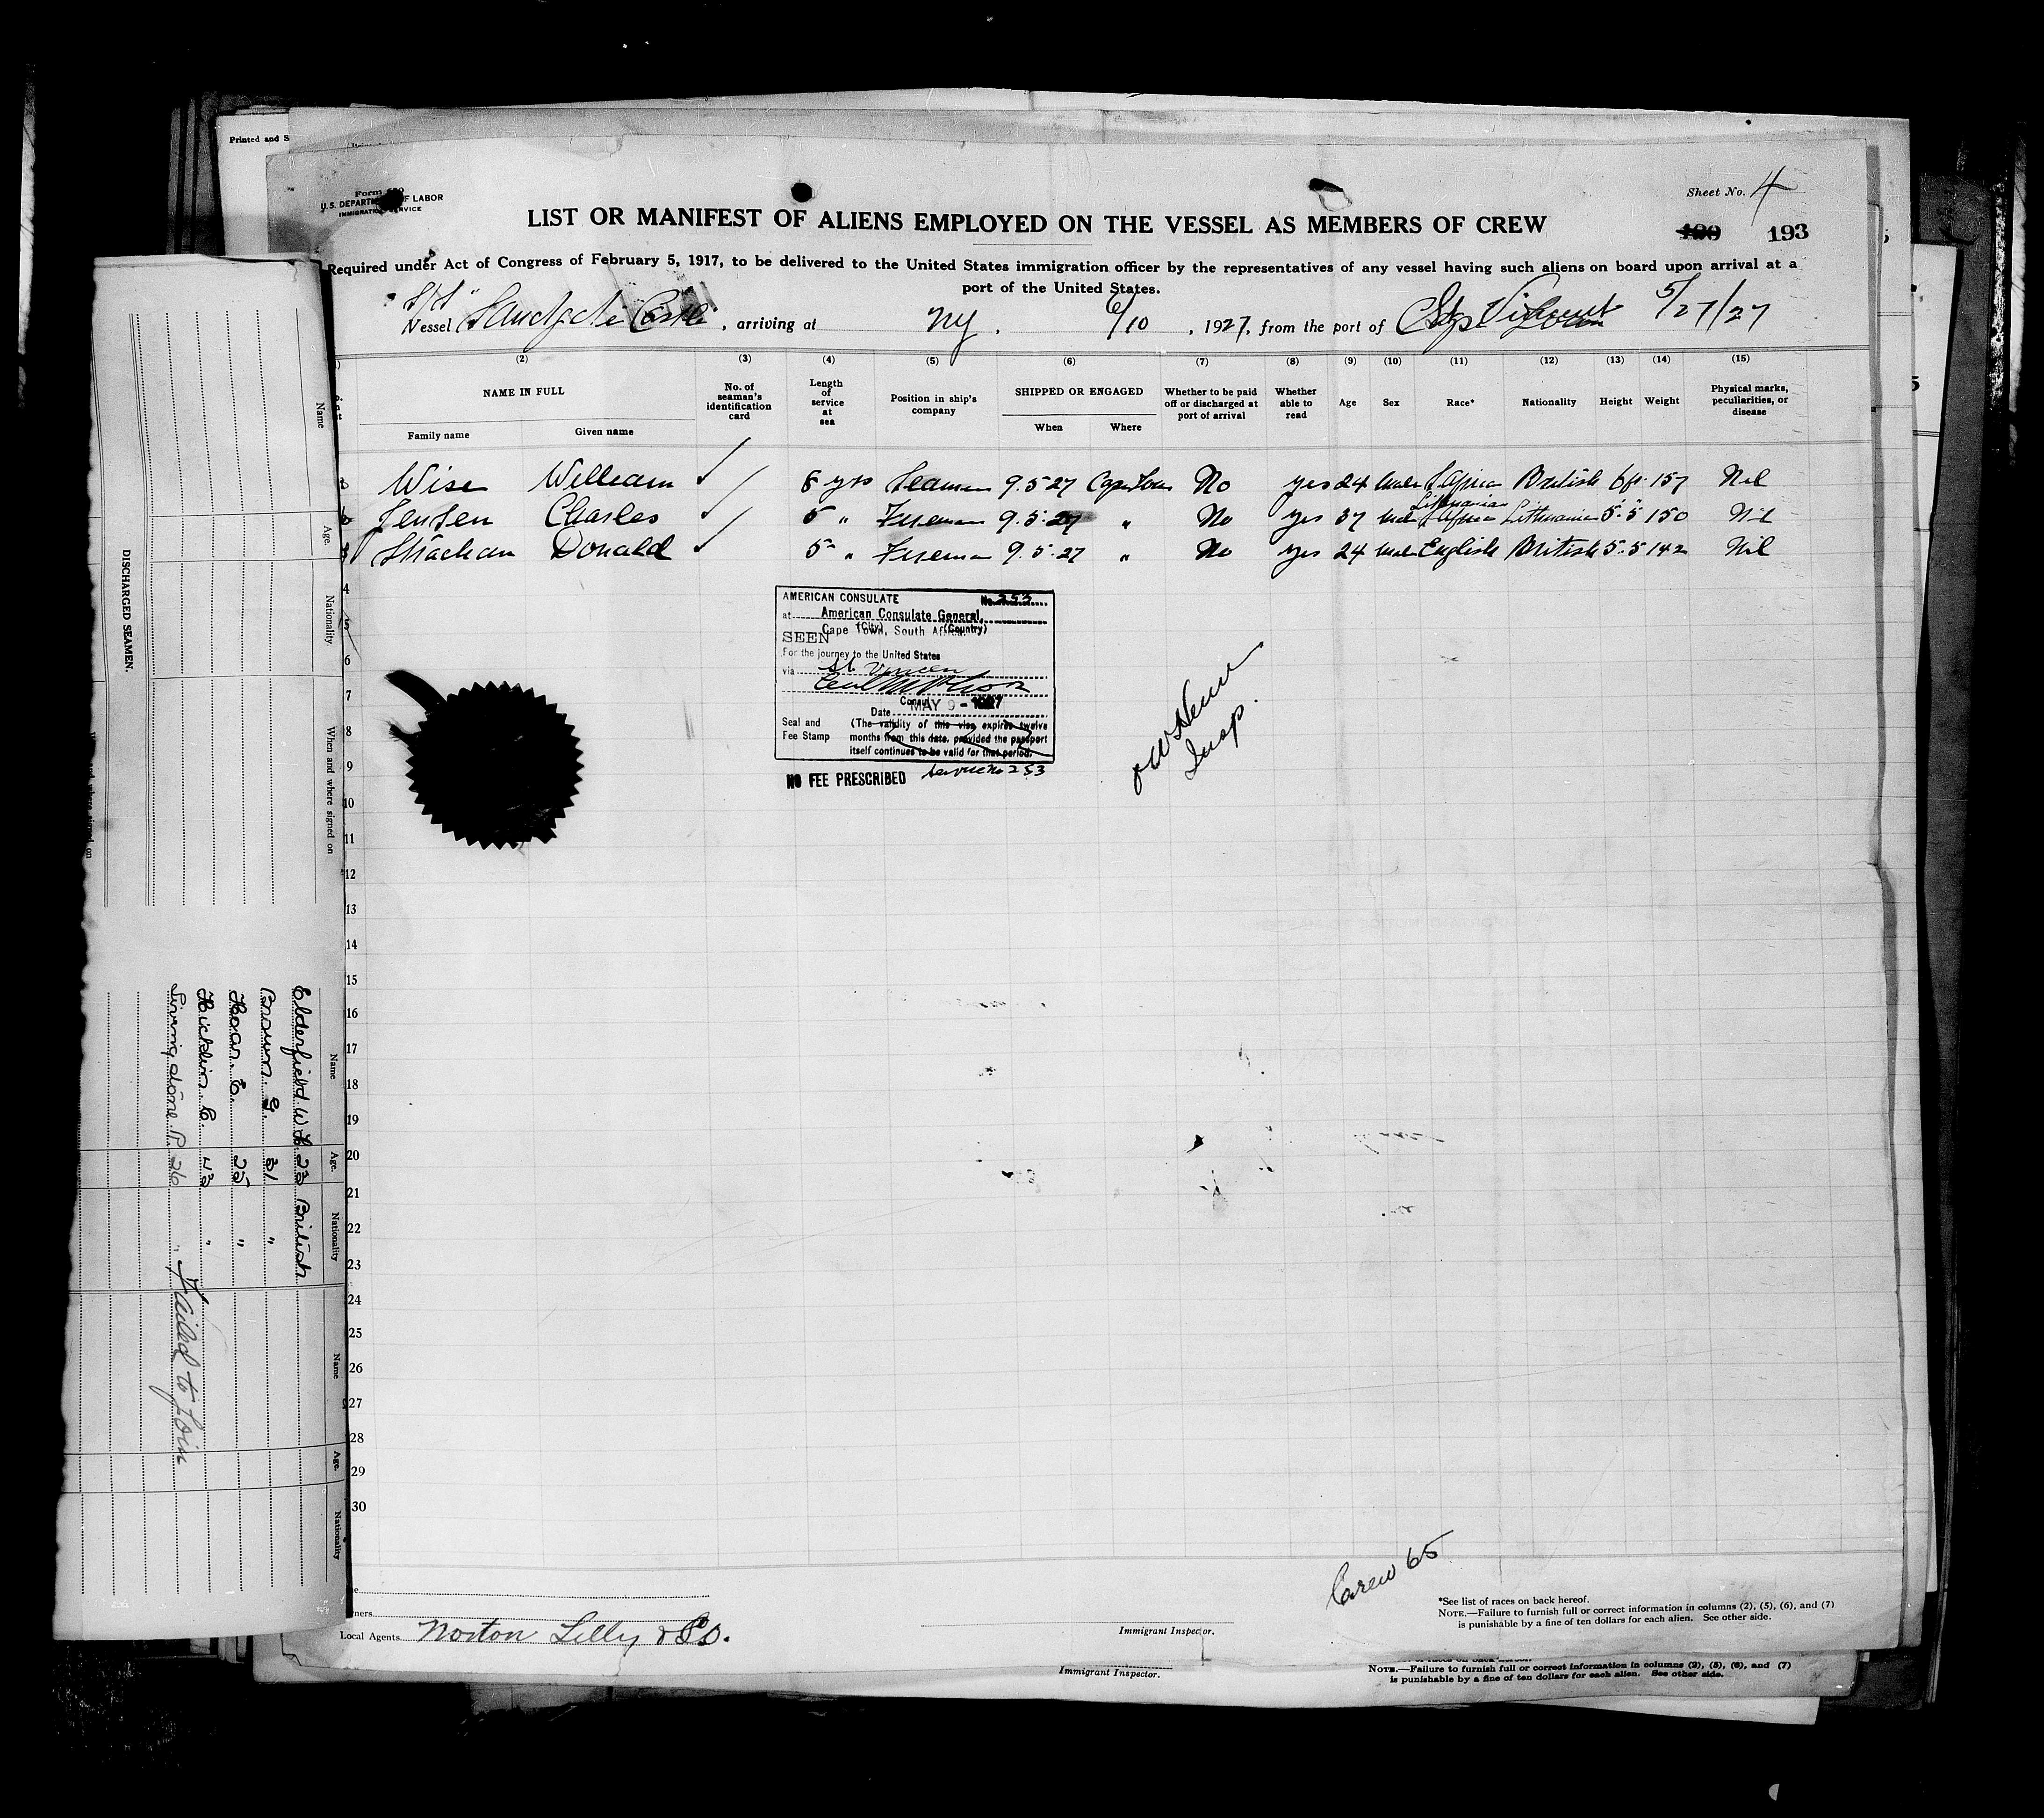 Printed and S
Form 680
U.S. DEPARTMENT OF LABOR
IMMIGRATION SERVICE
Sheet No. 4
LIST OR MANIFEST OF ALIENS EMPLOYED ON THE VESSEL AS MEMBERS OF CREW
193
Required under Act of Congress of February 5, 1917, to be delivered to the United States immigration officer by the representatives of any vessel having such aliens on board upon arrival at a
port of the United States.
S/S
Vessel Sandgate Castle, arriving at NY. 6/10, 1927, from the port of St Vincent 5/27/27
(2) (3) (4) (5) (6) (7) (8) (9) (10) (11) (12) (13) (14) (15)
NAME IN FULL
Family name Given name
No. of seaman's identification card
Length of service at sea
Position in ship's company
SHIPPED OR ENGAGED
When Where
Whether to be paid off or discharged at port of arrival
Whether able to read
Age
Sex
Race*
Nationality
Height
Weight
Physical marks, peculiarities, or disease
Wise William 8 yrs Seaman 9.5.27 Cape Town No yes 24 male S Africa British 6 ft 157 Nil
Lithuanian
Jensen Charles 5 " Fireman 9.5.27 " No yes 37 male Lithuania 5.5 150 Nil
Strachan Donald 5 " Fireman 9.5.27 " No yes 24 male English British 5.5 142 Nil
4
5
6
7
8
9
10
11
12
13
14
15
16
17
18
19
20
21
22
23
24
25
26
27
28
29
30
AMERICAN CONSULATE No. 253
at American Consulate General,
(City) (Country)
Cape Town, South Africa.
SEEN
For the journey to the United States
via St. Vincent
Consul
Date MAY 9 - 1927
Seal and Fee Stamp
(The validity of this visa expires twelve
months from this date, provided the passport
itself continues to be valid for that period.
NO FEE PRESCRIBED Service No 253
Insp.
Crew 65
Local Agents Norton Lilly & Co.
Immigrant Inspector.
*See list of races on back hereof.
NOTE.—Failure to furnish full or correct information in columns (2), (5), (6), and (7)
is punishable by a fine of ten dollars for each alien. See other side.
Immigrant Inspector.
NOTE.—Failure to furnish full or correct information in columns (2), (5), (6), and (7)
is punishable by a fine of ten dollars for each alien. See other side.
DISCHARGED SEAMEN.
Name Age. Nationality. When and where signed on
Name Age. Nationality Name Age. Nationality
Elderfield W H 23 British
Brown. G. 31 "
Hoar. E. 25 "
Hicklin. C. 43 "
Livingstone. P. 26 "
Failed to Join